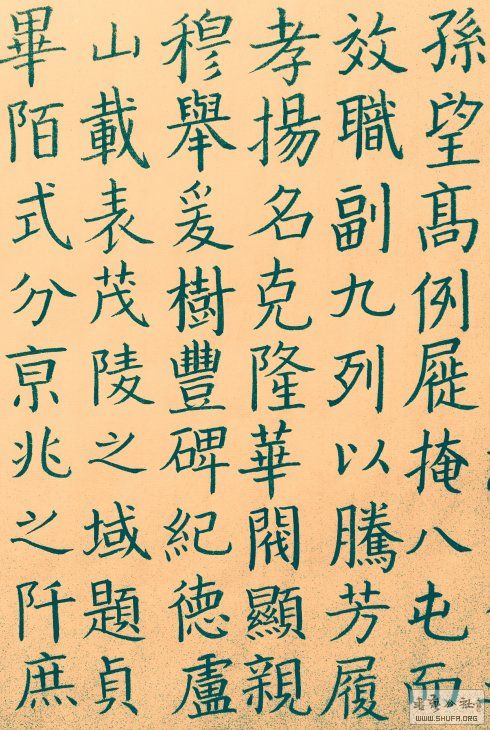 孫望髙例屣掩八屯而
效職副九列以騰芳履
孝揚名克隆華閥顯親
穆舉爰樹豐碑紀德盧
山載表茂陵之域題貞
畢陌式分亰兆之阡庶
WWW.SHUFA.ORG